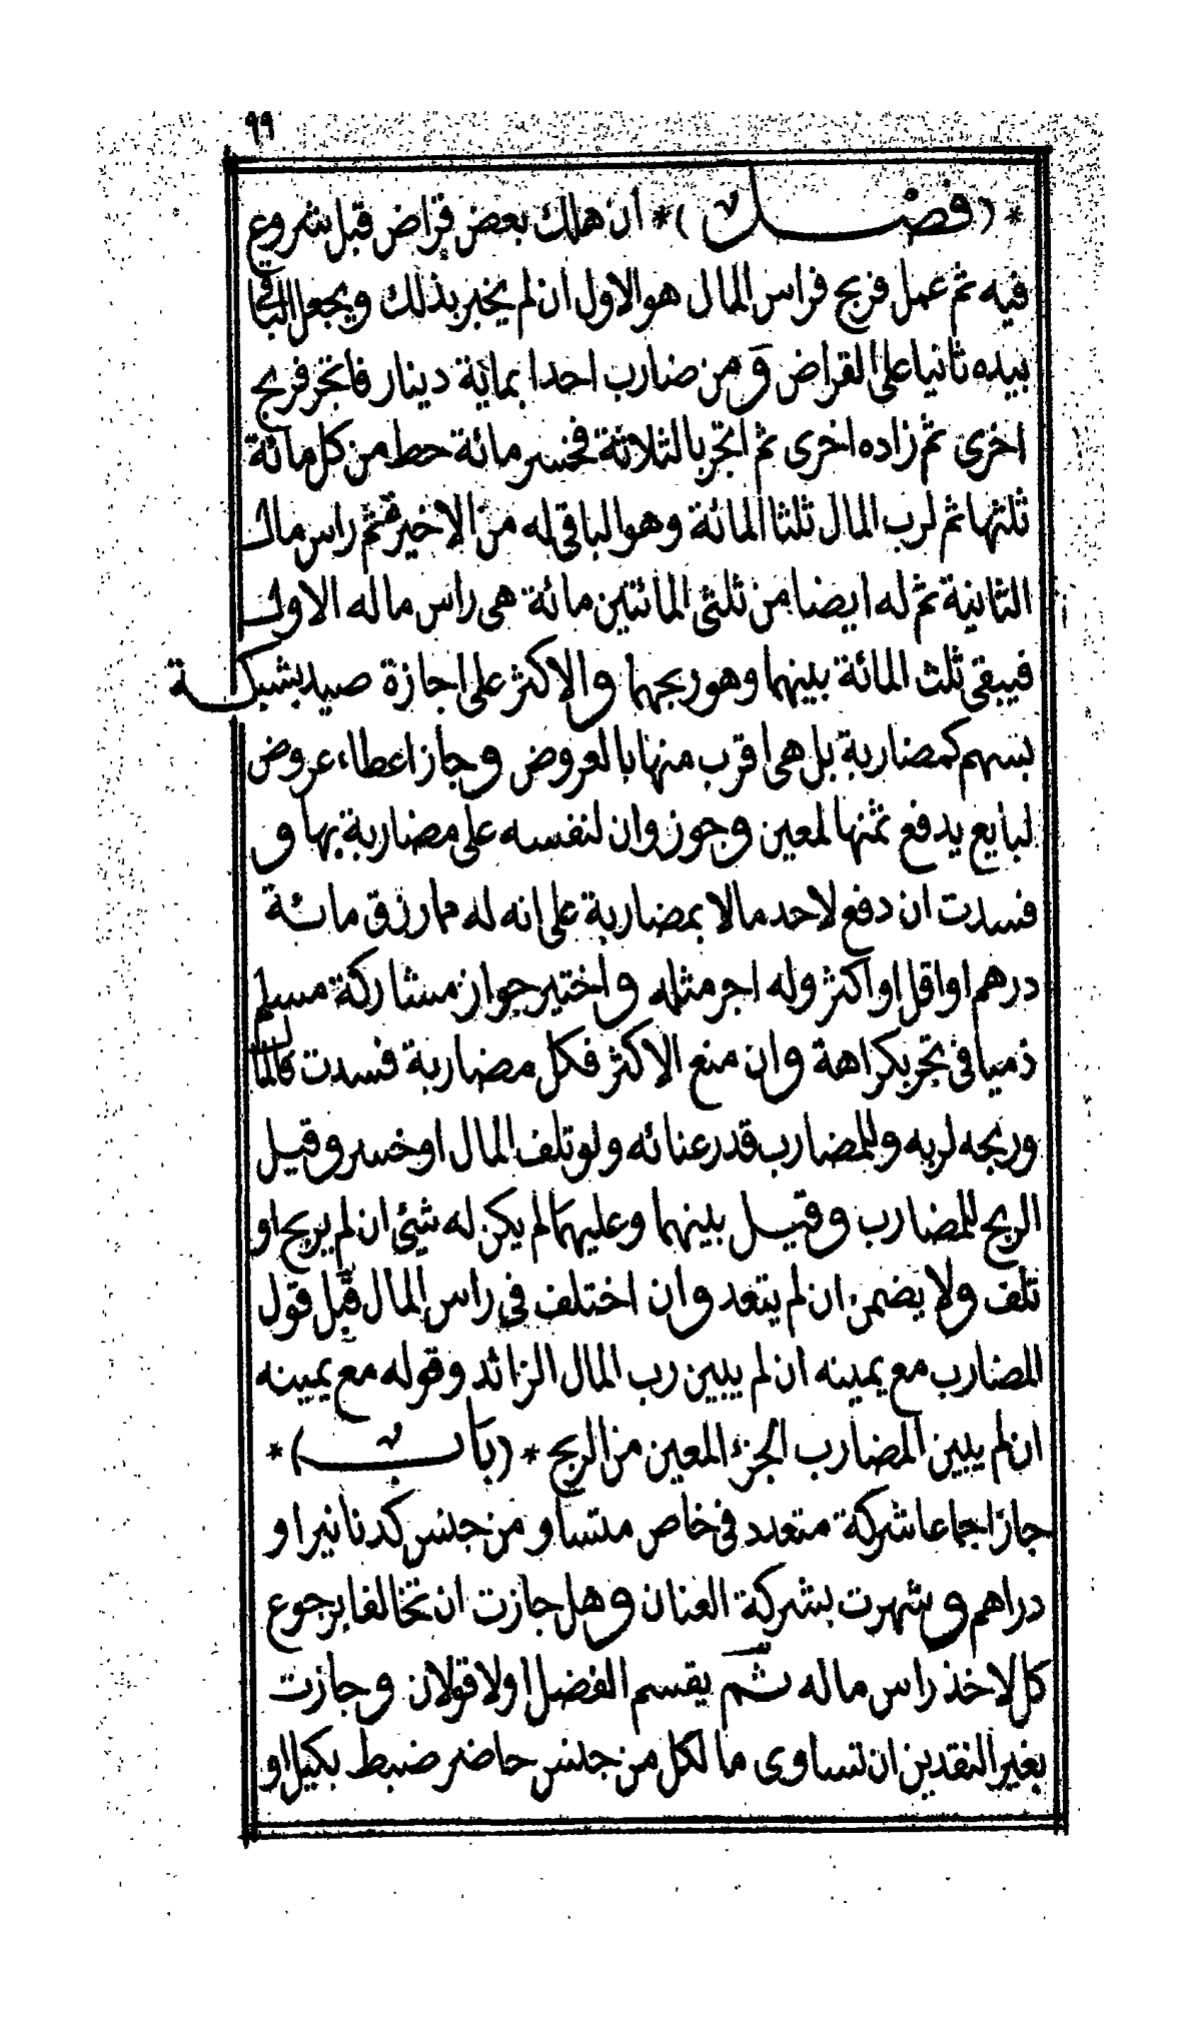 ٩٩
*( فصل )* ان هلك بعض قراض قبل شروع
فيه ثم عمل فربح فراس المال هو الاول ان لم يخبر بذلك ويجعل الباقي
بيده ثانيا على القراض ومن ضارب احدا بماية دينار فاتجر فربح
اخرى ثم زاده اخرى ثم اتجر بالثلاثة فخسر مائة حط من كل مائة
ثلثها ثم لرب المال ثلثا المائة وهو الباقي له من الاخيرة ثم راس مال
الثانية ثم له ايضا من ثلثى المائتين مائة هي راس ماله الاول
فيبقى ثلث المائة بينهما وهو ربحهما والاكثر على اجازة صيد بشبكة
بسهم كمضاربة بل هي اقرب منها بالعروض وجاز اعطاء عروض
لبايع يدفع ثمنها لمعين وجوز وان لنفسه على مضاربة بها و
فسدت ان دفع لاحد مالا بمضاربة على انه له مما رزق مائة
درهم او اقل او اكثر وله اجر مثله واختير جواز مشاركة مسلم
ذميا في تجر بكراهة وان منع الاكثر فكل مضاربة فسدت فالمال
وربحه لربه وللمضارب قدر عنائه ولو تلف المال او خسر وقيل
الربح للمضارب وقيل بينهما وعليهما لم يكن له شيئ ان لم يربح او
تلف ولا يضمن ان لم يتعد وان اختلف في راس المال قبل قول
المضارب مع يمينه ان لم يبين رب المال الزائد وقوله مع يمينه
ان لم يبين المضارب الجزء المعين من الربح *( باب )*
جاز اجماعا شركة متعدد في خاص متساو من جنس كدنانير او
دراهم وشهرت بشركة العنان وهل جازت ان تخالفا برجوع
كل لاخذ راس ماله ثم يقسم الفضل او لا قولان وجازت
بغير النقدين ان تساوى ما لكل من جنس حاضر ضبط بكيل او